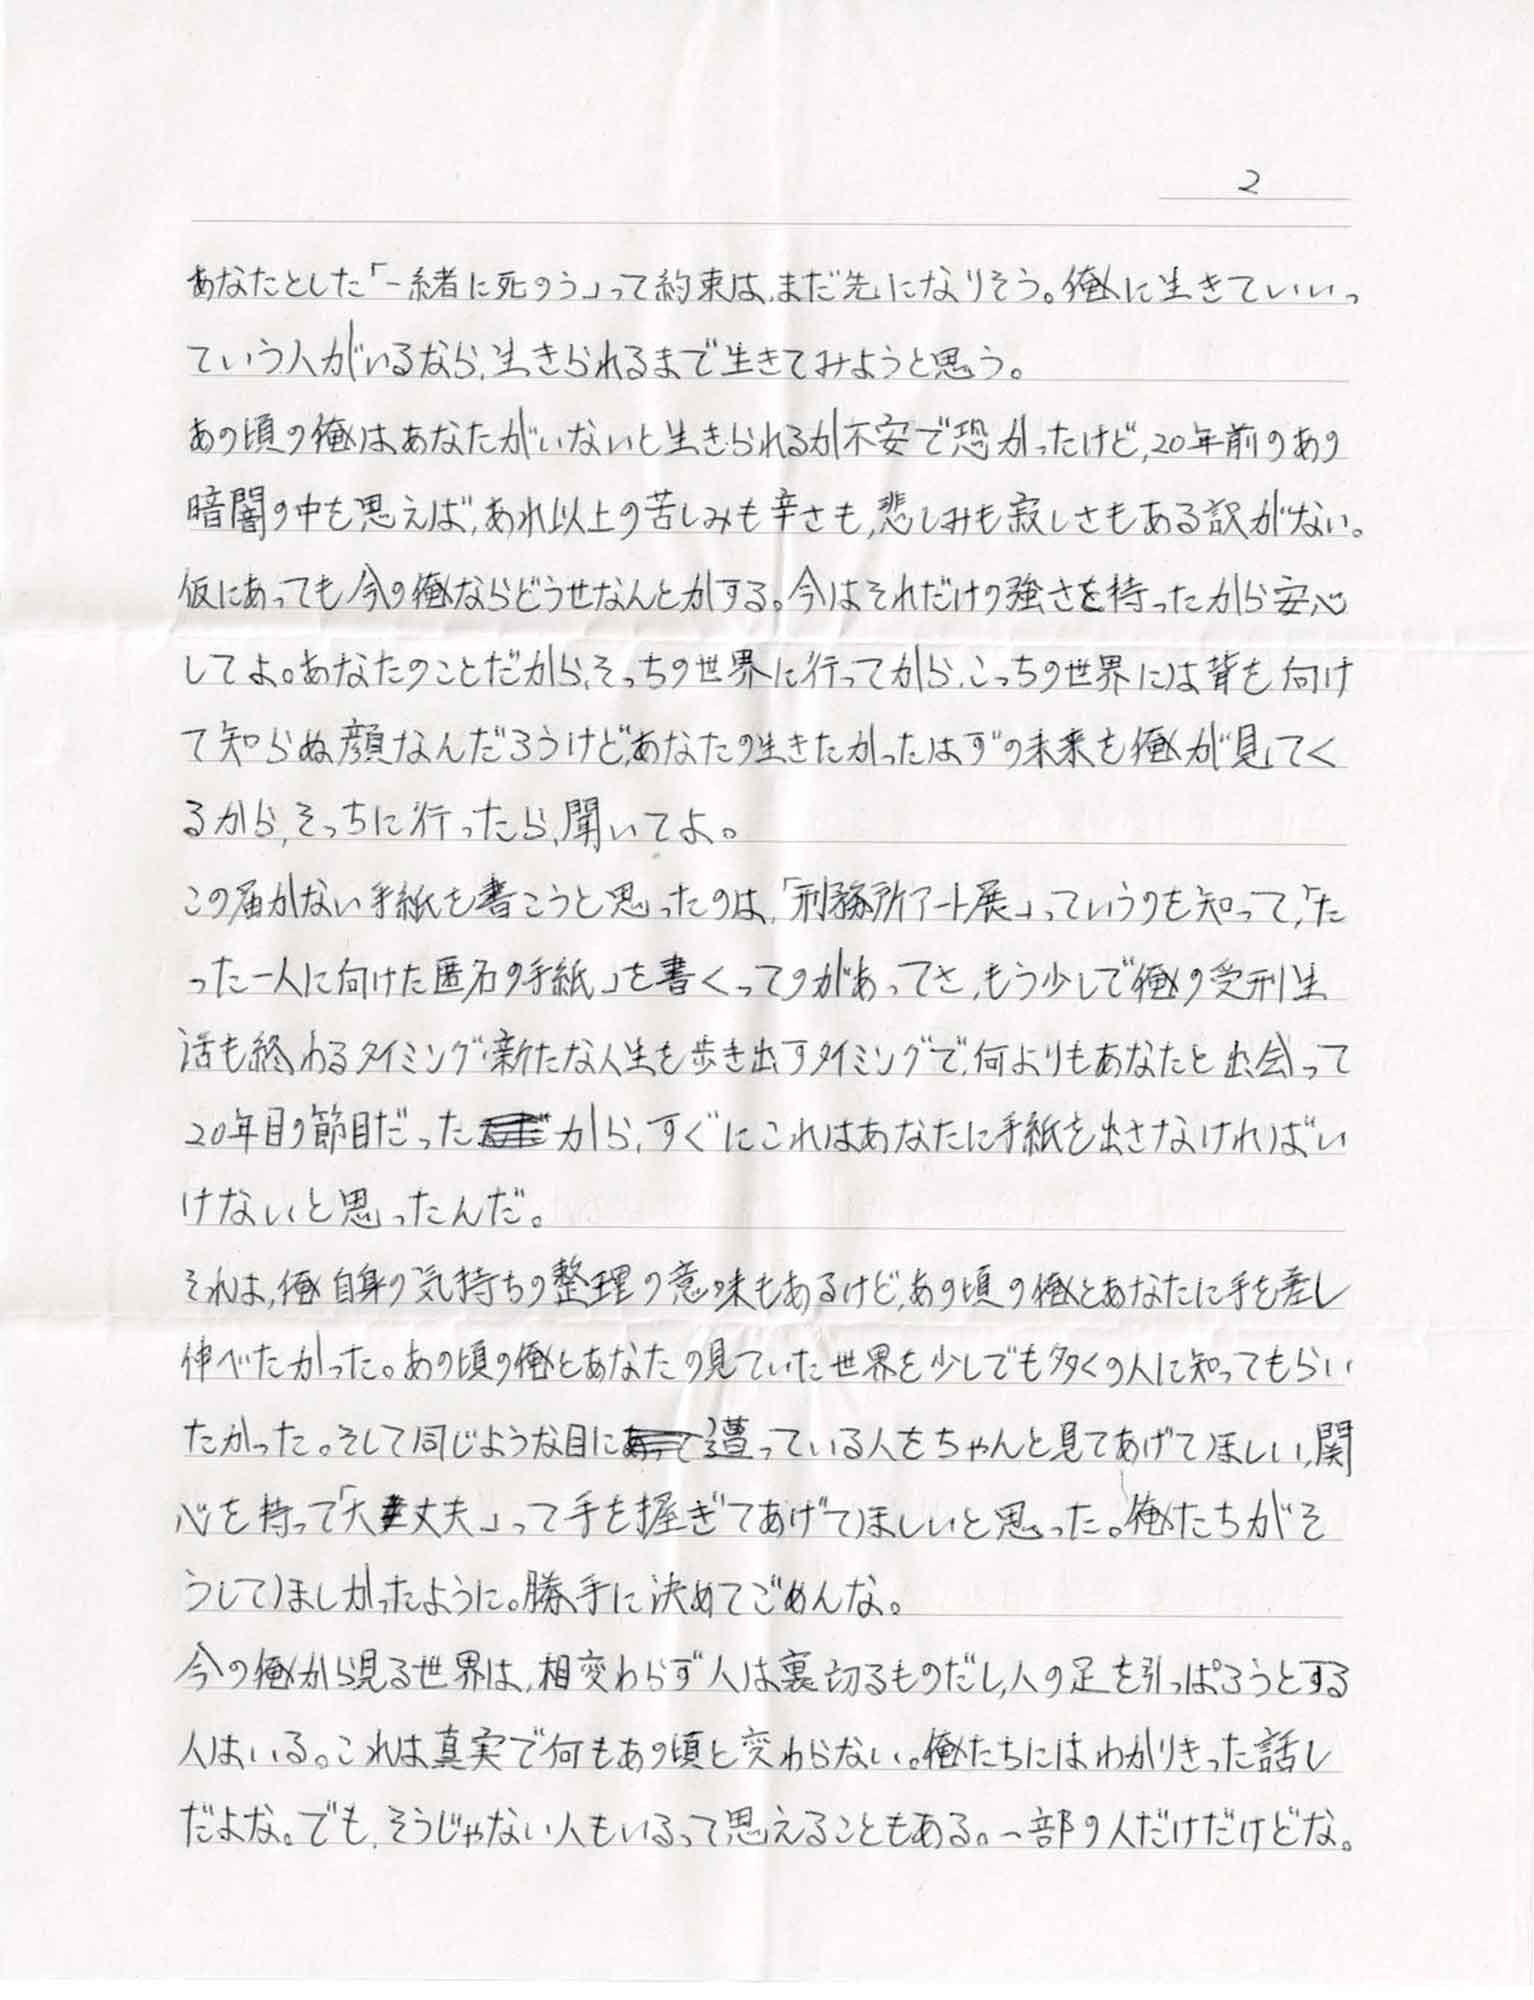 2
あなたとした「一緒に死のう」って約束は、まだ先になりそう。俺に生きていいっ
ていう人がいるなら、生きられるまで生きてみようと思う。
あの頃の俺は、あなたがいないと生きられるか不安で恐かったけど、20年前のあの
暗闇の中を思えば、あれ以上の苦しみも辛さも、悲しみも寂しさもある訳がない。
仮にあっても今の俺ならどうせなんとかする。今はそれだけの強さを持ったから安心
してよ。あなたのことだから、そっちの世界に行ってから、こっちの世界には背を向け
て知らぬ顔なんだろうけど、あなたの生きたかったはずの未来も俺が見てく
るから、そっちに行ったら、聞いてよ。
この届かない手紙を書こうと思ったのは、「刑務所アート展」っていうのを知って、「た
った一人に向けた匿名の手紙」を書くってのがあってさ、もう少しで俺の受刑生
活も終わるタイミング、新たな人生を歩き出すタイミングで、何よりもあなたと出会って
20年目の節目だったから、すぐにこれはあなたに手紙を出さなければい
けないと思ったんだ。
それは、俺自身の気持ちの整理の意味もあるけど、あの頃の俺とあなたに手を差し
伸べたかった。あの頃の俺とあなたの見ていた世界を少しでも多くの人に知ってもらい
たかった。そして同じような目に遭っている人をちゃんと見てあげてほしい、関
心を持って「大丈夫」って手を握ぎてあげてほしいと思った。俺たちがそ
うしてほしかったように。勝手に決めてごめんな。
今の俺から見る世界は、相変わらず人は裏切るものだし、人の足を引っぱろうとする
人はいる。これは真実で何もあの頃と変わらない。俺たちにはわかりきった話し
だよな。でも、そうじゃない人もいるって思えることもある。一部の人だけだけどな。